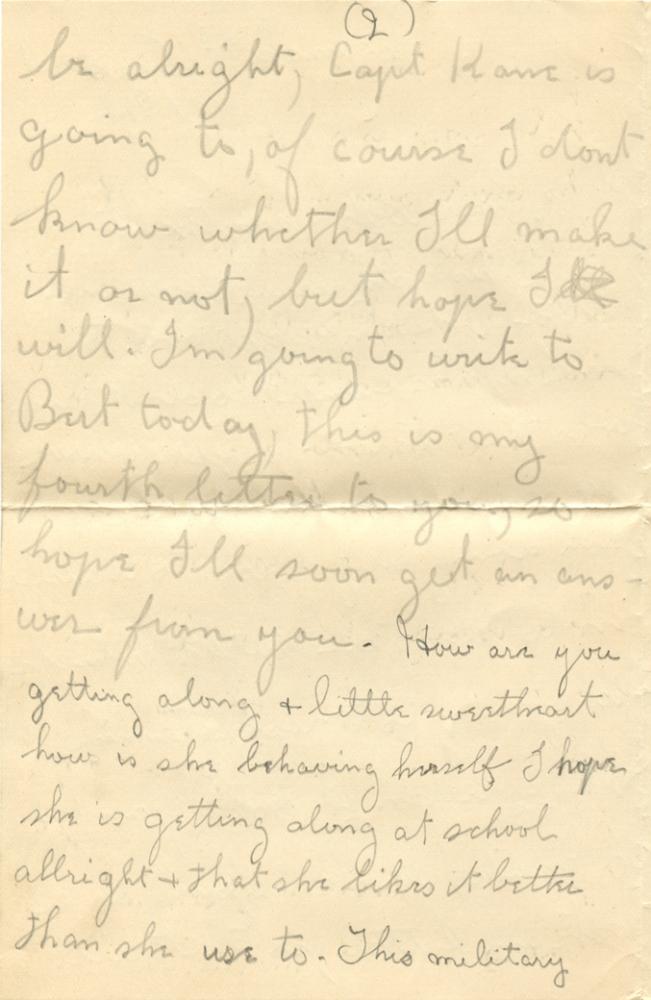 (2)
be alright, Capt Kane is
going to, of course I dont
know whether I'll make
it or not, but hope I
will. I'm going to write to
Bert today, this is my
fourth letter to you, so
hope I'll soon get an ans-
wer from you. How are you
getting along + little sweetheart
how is she behaving herself I hope
she is getting along at school
allright + that she likes it better
than she use to. This military